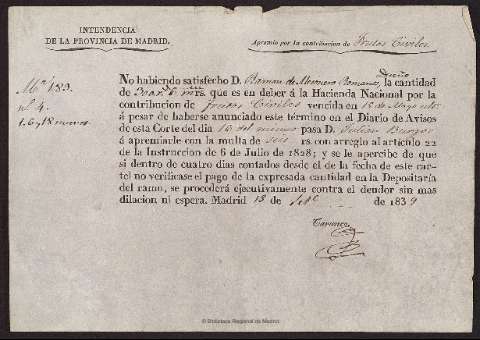 INTENDENCIA
DE LA PROVINCIA DE MADRID.
Apremio por la contribucion de Frutos Civiles
Mª 183.
No habiendo satisfecho D. Ramon de Mesonero Romanos, dueño la cantidad
de que es en deber á la Hacienda Nacional por la
contribucion de frutos Civiles vencida en 15 de Mayo
á pesar de haberse anunciado este término en el Diario de Avisos
de esta Corte del dia 15 del mismo pasa D. Julian Burgos
á apremiarle con la multa de seis rs con arreglo al artículo 22
de la Instruccion de 6 de Julio de 1828; y se le apercibe de que
si dentro de cuatro dias contados desde el de la fecha de este car-
tel no verificase el pago de la expresada cantidad en la Depositaría
del ramo, se procederá ejecutivamente contra el deudor sin mas
dilacion ni espera. Madrid 13 de de 1839
© Biblioteca Regional de Madrid